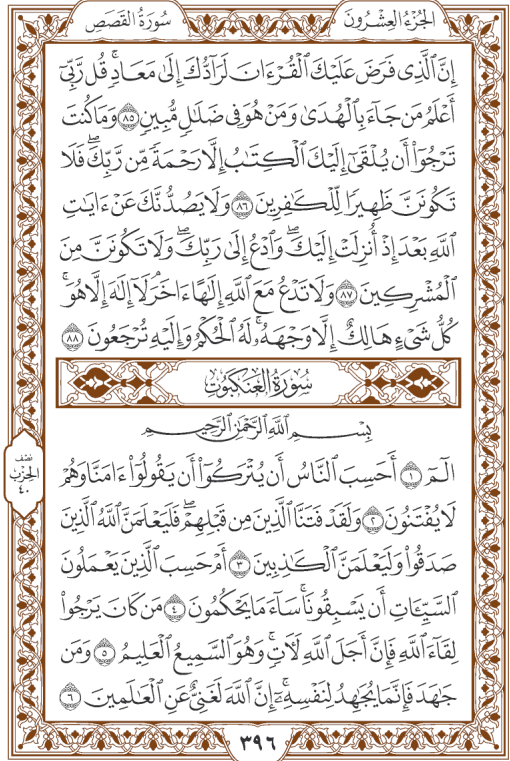 سُورَةُ القَصَصِ
الجُزْءُ العِشْرُونَ
إِنَّ ٱلَّذِى فَرَضَ عَلَيْكَ ٱلْقُرْءَانَ لَرَآدُّكَ إِلَىٰ مَعَادٍۚ قُل رَّبِّىٓ
أَعْلَمُ مَن جَآءَ بِٱلْهُدَىٰ وَمَنْ هُوَ فِى ضَلَٰلٍ مُّبِينٍ ٨٥ وَمَا كُنتَ
تَرْجُوٓا۟ أَن يُلْقَىٰٓ إِلَيْكَ ٱلْكِتَٰبُ إِلَّا رَحْمَةً مِّن رَّبِّكَۖ فَلَا
تَكُونَنَّ ظَهِيرًا لِّلْكَٰفِرِينَ ٨٦ وَلَا يَصُدُّنَّكَ عَنْ ءَايَٰتِ
ٱللَّهِ بَعْدَ إِذْ أُنزِلَتْ إِلَيْكَۖ وَٱدْعُ إِلَىٰ رَبِّكَۖ وَلَا تَكُونَنَّ مِنَ
ٱلْمُشْرِكِينَ ٨٧ وَلَا تَدْعُ مَعَ ٱللَّهِ إِلَٰهًا ءَاخَرَۘ لَآ إِلَٰهَ إِلَّا هُوَۚ
كُلُّ شَىْءٍ هَالِكٌ إِلَّا وَجْهَهُۥۚ لَهُ ٱلْحُكْمُ وَإِلَيْهِ تُرْجَعُونَ ٨٨
سُورَةُ العَنكَبُوتِ
بِسْمِ ٱللَّهِ ٱلرَّحْمَٰنِ ٱلرَّحِيمِ
الٓمٓ ١ أَحَسِبَ ٱلنَّاسُ أَن يُتْرَكُوٓا۟ أَن يَقُولُوٓا۟ ءَامَنَّا وَهُمْ
لَا يُفْتَنُونَ ٢ وَلَقَدْ فَتَنَّا ٱلَّذِينَ مِن قَبْلِهِمْۖ فَلَيَعْلَمَنَّ ٱللَّهُ ٱلَّذِينَ
صَدَقُوا۟ وَلَيَعْلَمَنَّ ٱلْكَٰذِبِينَ ٣ أَمْ حَسِبَ ٱلَّذِينَ يَعْمَلُونَ
ٱلسَّيِّـَٔاتِ أَن يَسْبِقُونَاۚ سَآءَ مَا يَحْكُمُونَ ٤ مَن كَانَ يَرْجُوا۟
لِقَآءَ ٱللَّهِ فَإِنَّ أَجَلَ ٱللَّهِ لَءَاتٍۚ وَهُوَ ٱلسَّمِيعُ ٱلْعَلِيمُ ٥ وَمَن
جَٰهَدَ فَإِنَّمَا يُجَٰهِدُ لِنَفْسِهِۦٓۚ إِنَّ ٱللَّهَ لَغَنِىٌّ عَنِ ٱلْعَٰلَمِينَ ٦
نصف
الحزب
٤٠
٣٩٦